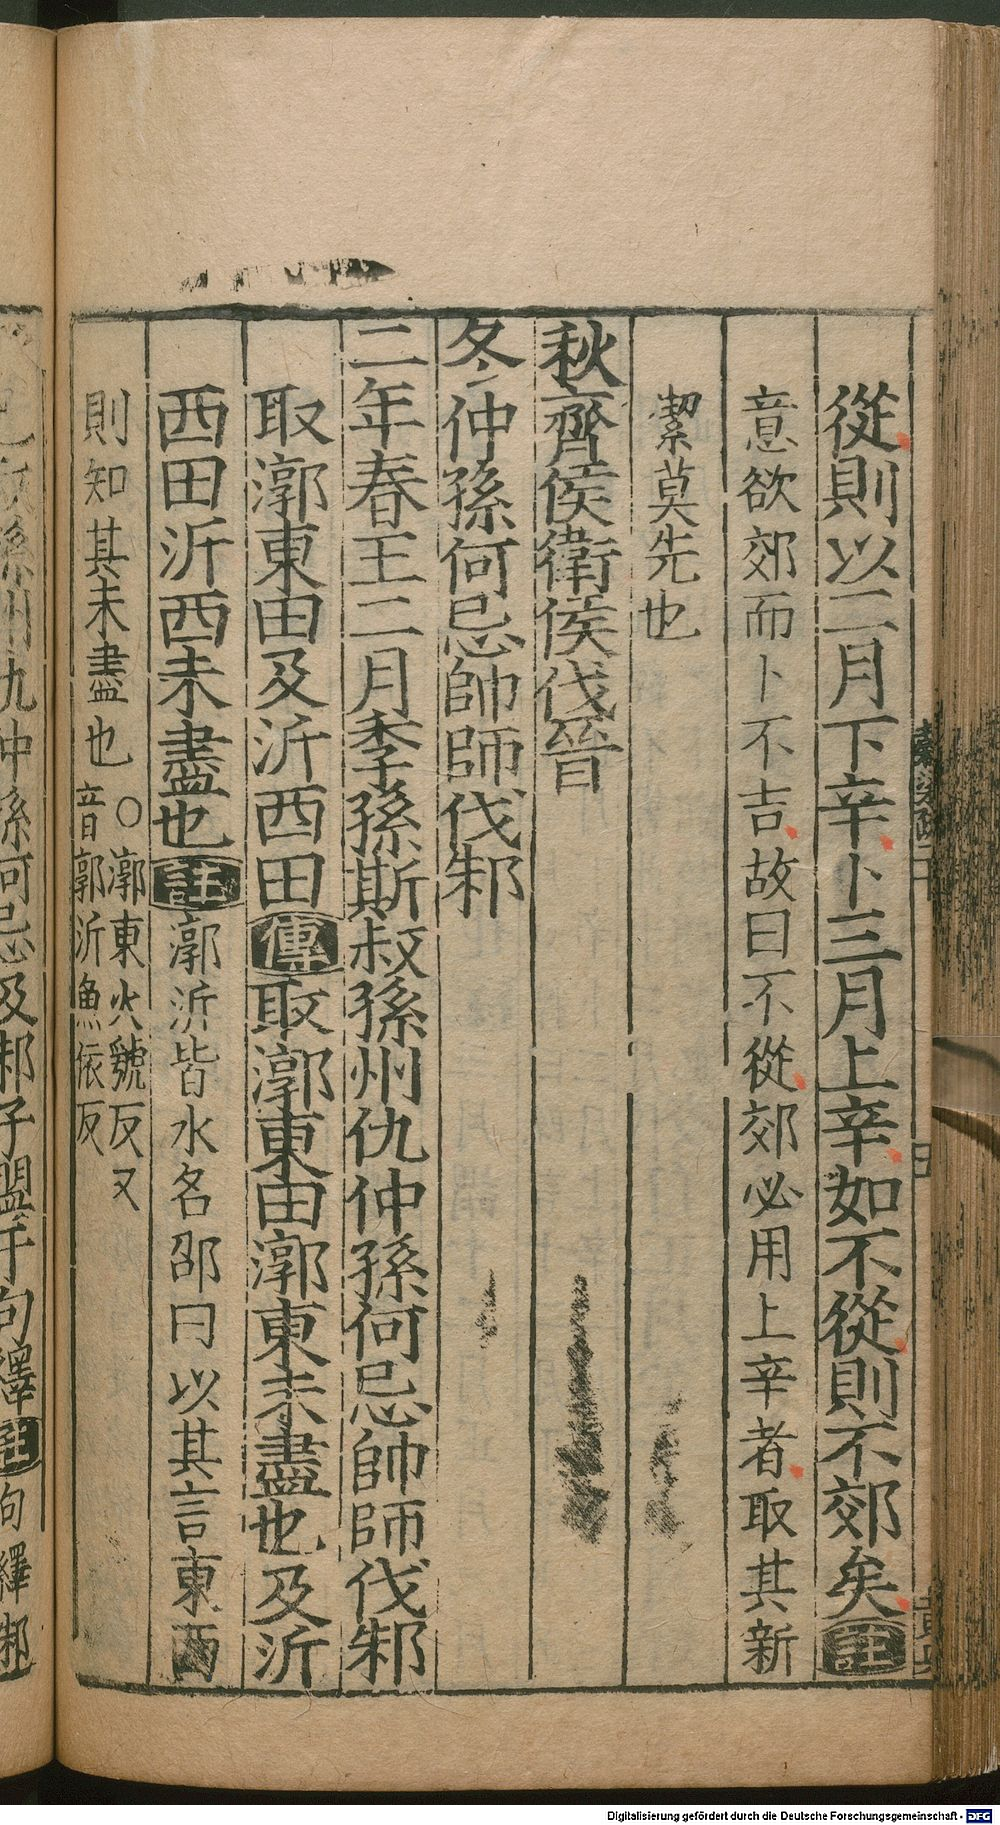 從則以二月下辛卜三月上辛如不從則不郊矣註
意欲郊而卜不吉故曰不從郊必用上辛者取其新
潔莫先也
秋齊侯衛侯伐晉
冬仲孫何忌帥師伐邾
二年春王二月季孫斯叔孫州仇仲孫何忌帥師伐邾
取漷東田及沂西田傳取漷東田漷東未盡也及沂
西田沂西未盡也註漷沂皆水名邵曰以其言東西
則知其未盡也○漷東火號反又
音郭沂魚依反
孫州仇仲孫何忌及邾子盟于句繹註句繹邾
Digitalisierung gefördert durch die Deutsche Forschungsgemeinschaft - DFG